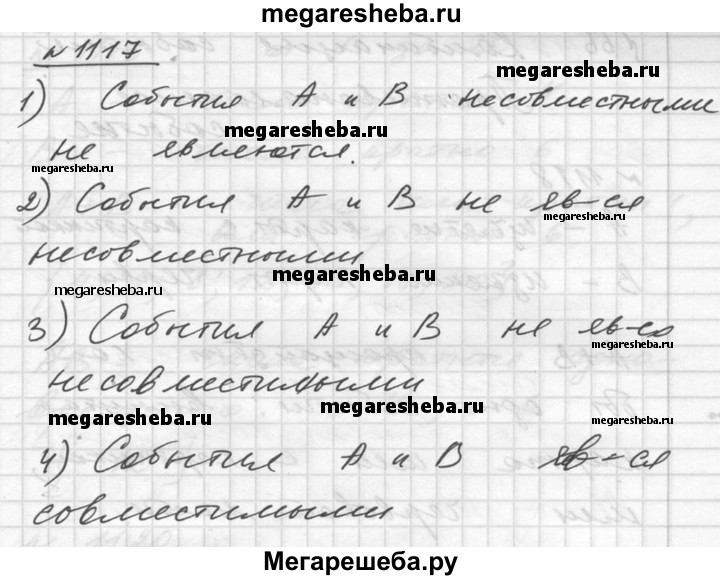 megaresheba.ru
№1117
megaresheba.ru
1) События А и В несовместными
megaresheba.ru
не являются.
megaresheba.ru
megaresheba.ru
2) События А и В не яв-ся
megaresheba.ru
несовместными
megaresheba.ru
megaresheba.ru
3) События А и В не яв-ся
megaresheba.ru
несовместимыми
megaresheba.ru
megaresheba.ru
megaresheba.ru
4) События А и В яв-ся
совместимыми
Мегарешеба.ру